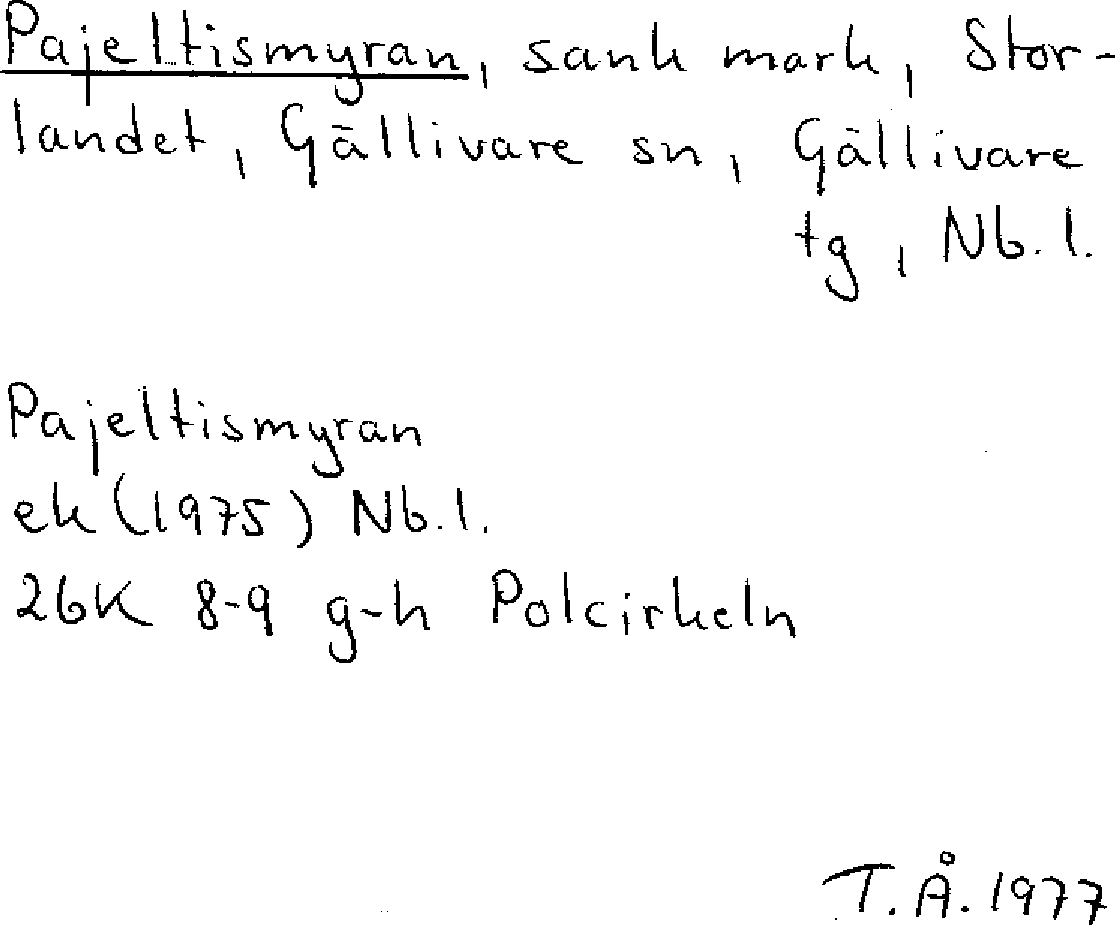 Pajeltismyran, sank mark, Stor-
landet, Gällivare sn, Gällivare
tg, Nb. l.
Pajeltismyran
ek (1975) Nb. l.
26K 8-9 g-h Polcirkeln
T. Å. 1977